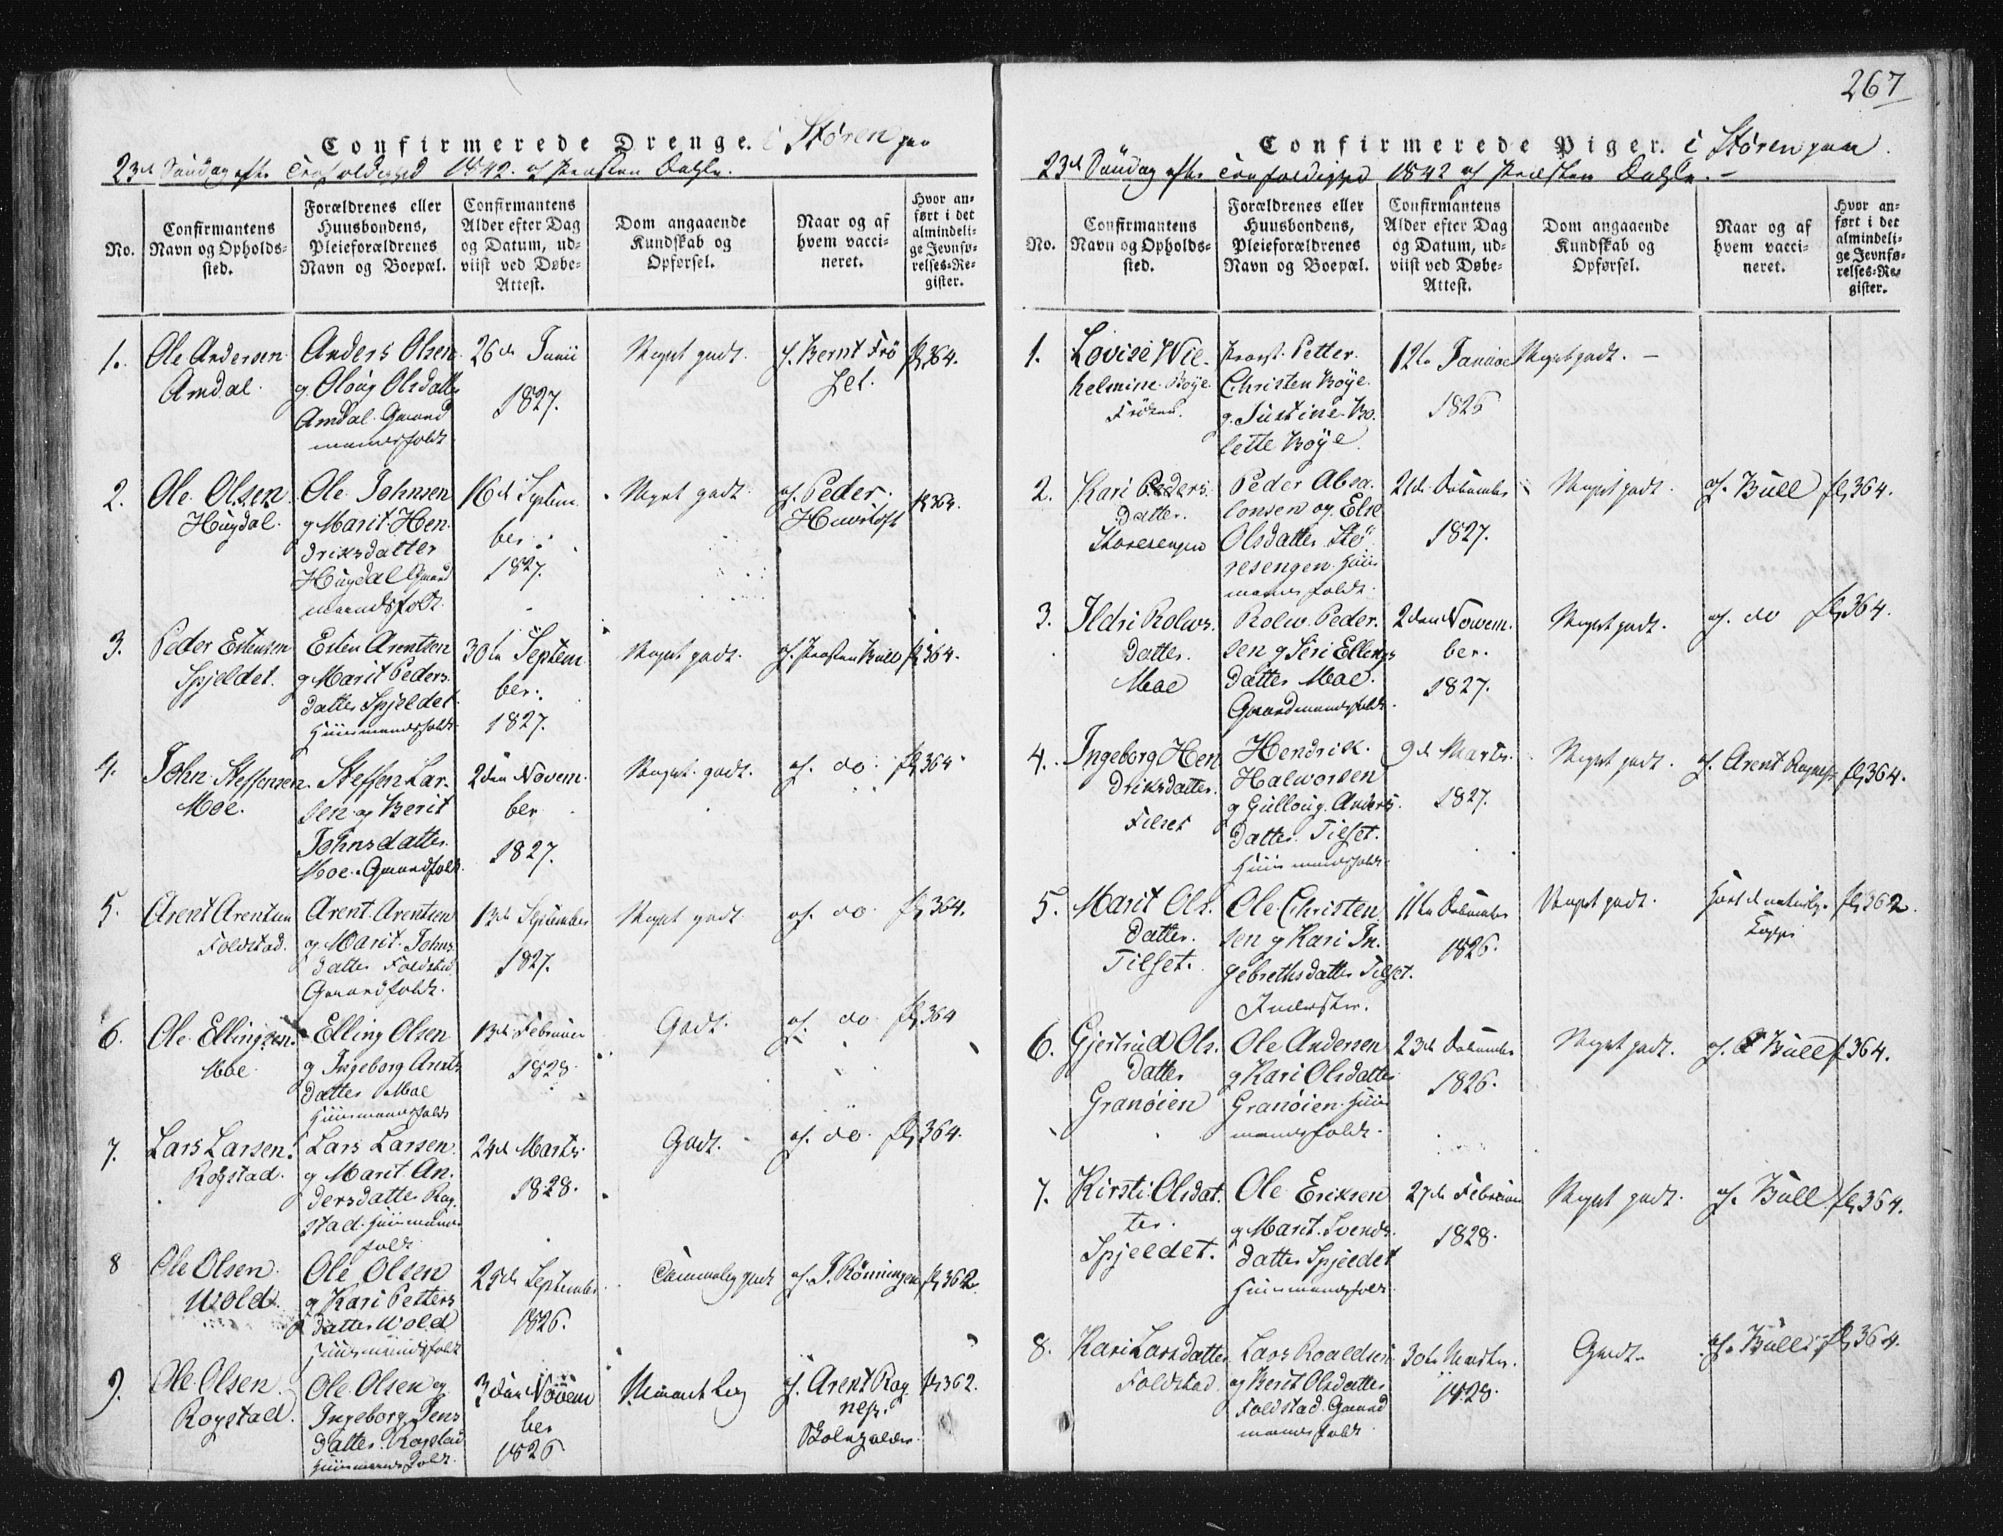 Confirmerede Drenge. i Støren
23de Søndag efter Trefoldighed 1842. af Præsten Dahle.
No.
Confirmantens
Navn og Opholds-
sted.
Forældrenes eller
Huusbondens,
Pleieforældrenes
Navn og Boepæl.
Confirmantens
Alder efter Dag
og Datum, ud-
viist ved Døbe-
Attest.
Dom angaaende
Kundskab og
Opførsel.
Naar og af
hvem vacci-
neret.
Hvor an-
ført i det
almindeli-
ge Jevnfø-
relses-Re-
gister.
1.
Ole Andersen
Amdal.
Anders Olsen
og Oloug Olsdatter
Amdal. Gaard
mandsfolk
26de Junii
1827.
Meget godt.
af Bernt Frø
set.
fl 364.
2.
Ole Olsen
Hugdal.
Ole Johnsen
og Marit Hen
driksdatter
Hugdal Gaard
mandsfolk.
16de Septem
ber.
1827.
Meget godt.
af Peder
fl 364.
3.
Peder Estensen
Spjeldet.
Esten Arentsen
og Marit Peders
datter Spjeldet
Huusmandsfolk.
30te Septem
ber.
1827.
Meget godt.
af Præsten Bull
fl 364.
4.
John Steffensen
Moe.
Steffen Lar-
sen og Berit
Johnsdatter
Moe. Gaardfolk.
2den Novem
ber
1827.
Meget godt.
af do.
fl 364
5.
Arent Arentsen
Foldstad.
Arent Arentsen
og Marit Johns
datter Foldstad
Gaardfolk.
13de September
1827.
Meget godt.
af do.
fl 364.
6.
Ole Ellingsen
Moe
Elling Olsen
og Ingeborg Arents
datter Moe
Huusmandsfolk
13de Februar
1828.
Godt.
af do.
fl 364
7.
Lars Larsen
Rogstad.
Lars Larsen
og Marit An.
dersdatter Rog
stad. Huusmands
folk.
24de Marts
1828.
Godt.
af do.
fl 364.
8
Ole Olsen
Wold.
Ole Olsen
og Kari Petters
datter Wold
Huusmandsfolk
25de September
1826.
Temmelig godt
af J. Rönningen
fl 362.
9.
Ole Olsen
Rogstad.
Ole Olsen og
Ingeborg Jens
datter Rogstad
Huusmandsfolk.
3den Novem
ber
1826
af Arent Rog
nes.
fl 362.
267
Confirmerede Piger. i Støren
23de Søndag efter Trefoldighed 1842 af Præsten Dahle. –
No.
Confirmantens
Navn og Opholds-
sted.
Forældrenes eller
Huusbondens,
Pleieforældrenes
Navn og Boepæl.
Confirmantens
Alder efter Dag
og Datum, ud-
viist ved Døbe-
Attest.
Dom angaaende
Kundskab og
Opførsel.
Naar og af
hvem vacci-
neret.
Hvor an-
ført i det
almindeli-
ge Jevnfø-
relses-Re-
gister.
1.
Lovise Wil-
helmine Boye
Frøken.
Provst. Petter
Christen Boye
og Justine Bo.
lette Boye.
12te Januar
1826
Meget godt. –
2.
Kari Peders
datter.
Størensengen
Peder Absa
lonsen og Else
Olsdatter Stø
rensengen Huus
mandsfolk.
21de December
1827.
Meget godt.
af Bull
fl 364.
3.
Ildri Rolws.
datter.
Moe
Rolw Peder.
sen og Siri Ellings
datter Moe.
Gaardmandsfolk.
2den Novem.
ber.
1827.
Meget godt.
af do
fl 364.
4.
Ingeborg Hen
driksdatter.
Tilset
Hendrik
Halworsen
og Gulloug Anders
datter Tilset.
Huusmandsfolk.
9de Marts.
1827.
Meget godt.
af Arent Rognes
fl 364.
5.
Marit Ols.
datter.
Tilset.
Ole Christen
sen og Kari In.
gebrethsdatter Tilset.
Inderster.
11te December
1826.
Meget godt.
Havt de naturlige
Kopper
fl 362.
6.
Gjertrud Ols.
datter
Granöien
Ole Andersen
og Kari Olsdatter
Granöien. Huus
mandsfolk.
23de December
1826.
Meget godt.
af Bull
fl 364.
7.
Kirsti Olsdat.
ter.
Spjeldet.
Ole Eriksen
og Marit Svends.
datter Spjeldet
Huusmandsfolk
27de Februar
1828.
Meget godt.
af Bull
fl 364.
8.
Kari Larsdatter
Foldstad.
Lars Roaldsen
og Berit Olsdatter
Foldstad. Gaard
mandsfolk
30te Marts.
1828.
Godt.
af Bull
fl 364.